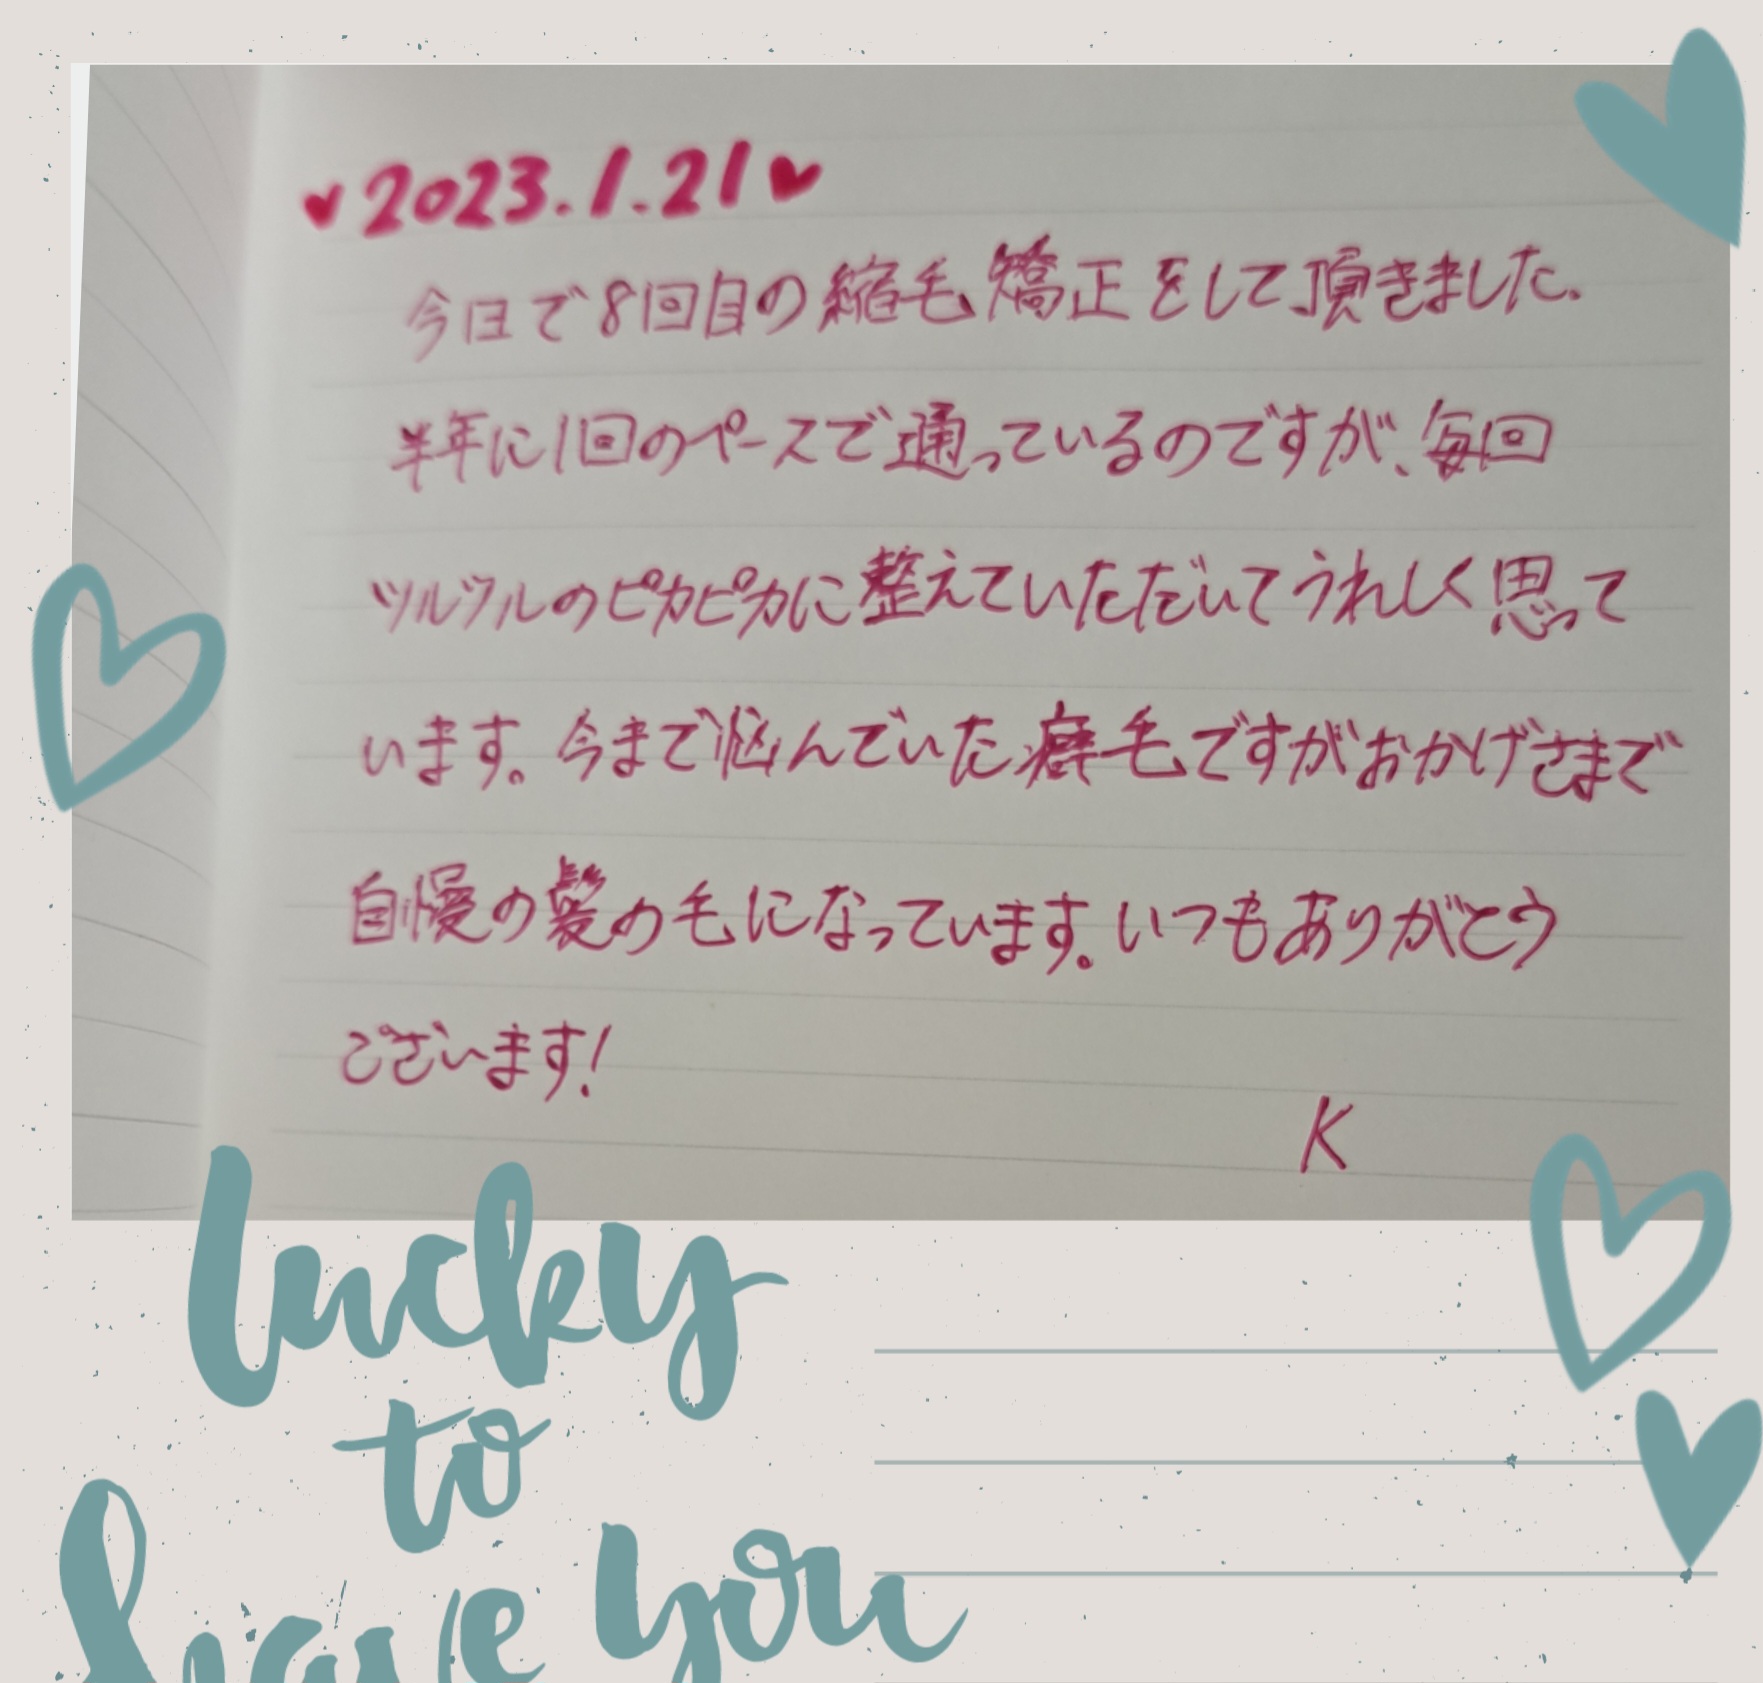 ♥2023.1.21♥
今日で8回目の縮毛矯正をして頂きました。
半年に1回のペースで通っているのですが、毎回
ツルツルのピカピカに整えていただいてうれしく思って
います。今まで悩んでいた癖毛ですがおかげさまで
自慢の髪の毛になっています。いつもありがとう
ございます!
K
lucky
to
have you